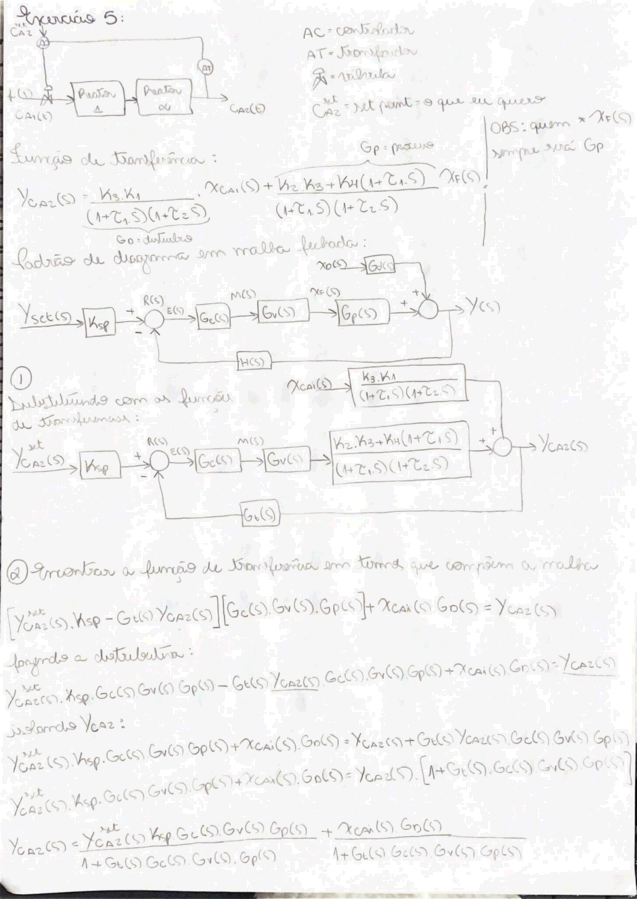 Exercício 5:
set
CA2
AC
AT
f(t)
CAi(t)
Reator
1
Reator
2
CA2(t)
AC = controlador
AT = transmissor
= válvula
CA2 set = set point = o que eu quero
OBS: quem * XF(s)
sempre será Gp
Função de transferência:
Gp = processo
YCA2(s) = K3.K1 / (1+τ1.S)(1+τ2.S) . XCAi(s) + K2.K3+K4(1+τ1.S) / (1+τ1.S)(1+τ2.S) XF(s).
GD = distúrbio
Padrão de diagrama em malha fechada:
XD(s)
Gd(s)
Yset(s)
Ksp
+
-
R(s)
E(s)
Gc(s)
M(s)
Gv(s)
XF(s)
Gp(s)
+
+
Y(s)
H(s)
①
Substituindo com as função
de transferências:
XCAi(s)
K3.K1 / (1+τ1.S)(1+τ2.S)
YCA2 set (s)
Ksp
+
-
R(s)
E(s)
Gc(s)
M(s)
Gv(s)
K2.K3+K4(1+τ1.S) / (1+τ1.S)(1+τ2.S)
+
+
YCA2(s)
Gt(s)
② Encontrar a função de transferência em termos que compõem a malha
[YCA2 set (s).Ksp - Gt(s) YCA2(s)] [Gc(s).Gv(s).Gp(s)] + XCAi(s) GD(s) = YCA2(s)
fazendo a distributiva:
YCA2 set (s).Ksp.Gc(s) Gv(s) Gp(s) - Gt(s) YCA2(s) .Gc(s).Gv(s) Gp(s) + XCAi(s) GD(s) = YCA2(s)
isolando YCA2:
YCA2 set (s).Ksp.Gc(s) Gv(s) Gp(s) + XCAi(s).GD(s) = YCA2(s) + Gt(s) YCA2(s) Gc(s) Gv(s) Gp(s)
YCA2 set (s).Ksp.Gc(s) Gv(s) Gp(s) + XCAi(s).GD(s) = YCA2(s). [1+Gt(s).Gc(s).Gv(s) Gp(s)]
YCA2(s) = YCA2 set (s) Ksp Gc(s).Gv(s) Gp(s) / 1+Gt(s) Gc(s).Gv(s).Gp(s) + XCAi(s) GD(s) / 1+Gt(s) Gc(s).Gv(s) Gp(s)